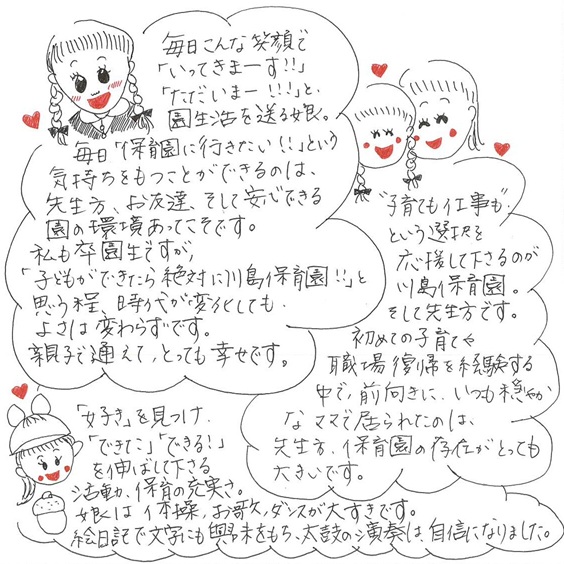 毎日こんな笑顔で
「いってきまーす!!」
「ただいまー!!!」と、
園生活を送る娘。
毎日「保育園に行きたい!!」という
気持ちをもつことができるのは、
先生方、お友達、そして安心できる
園の環境あってこそです。
私も卒園生ですが、
「子どもができたら絶対に川島保育園!!」と
思う程、時代が変化しても、
よさは変わらずです。
親子で通えて、とっても幸せです。
"子育ても仕事も"
という選択を
応援して下さるのが
川島保育園。
そして先生方です。
初めての子育てや
職場復帰を経験する
中で、前向きに、いつも穏やか
なママで居られたのは、
先生方、保育園の存在がとっても
大きいです。
「好き」を見つけ、
「できた」「できる!」
を伸ばして下さる
活動、保育の充実さ。
娘は体操、お歌、ダンスが大すきです。
絵日記で文字にも興味をもち、太鼓の演奏は自信になりました。